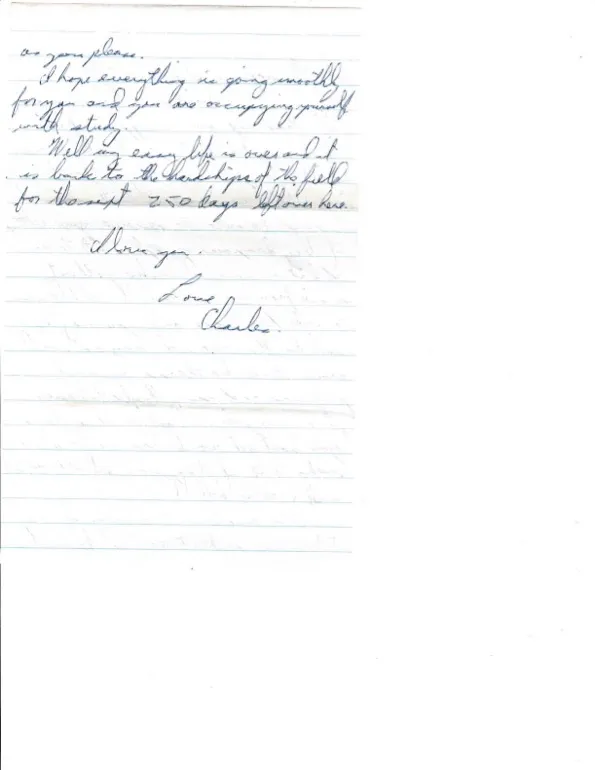 as you please.
I hope everything is going smoothly
for you and you are occupying yourself
with study.
Well my easy life is over and it
is back to the hardships of the field
for the next 250 days left over here.
I love you.
Love,
Charles.